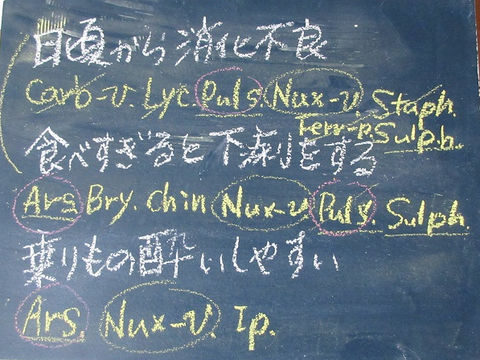 日頃から消化不良
Carb-v. Lyc. Puls. Nux-v. Staph.
Ferr-p. Sulph.
食べすぎると下痢をする
Ars Bry. Chin Nux-v Puls. Sulph.
乗りもの酔いしやすい
Ars. Nux-v. Ip.